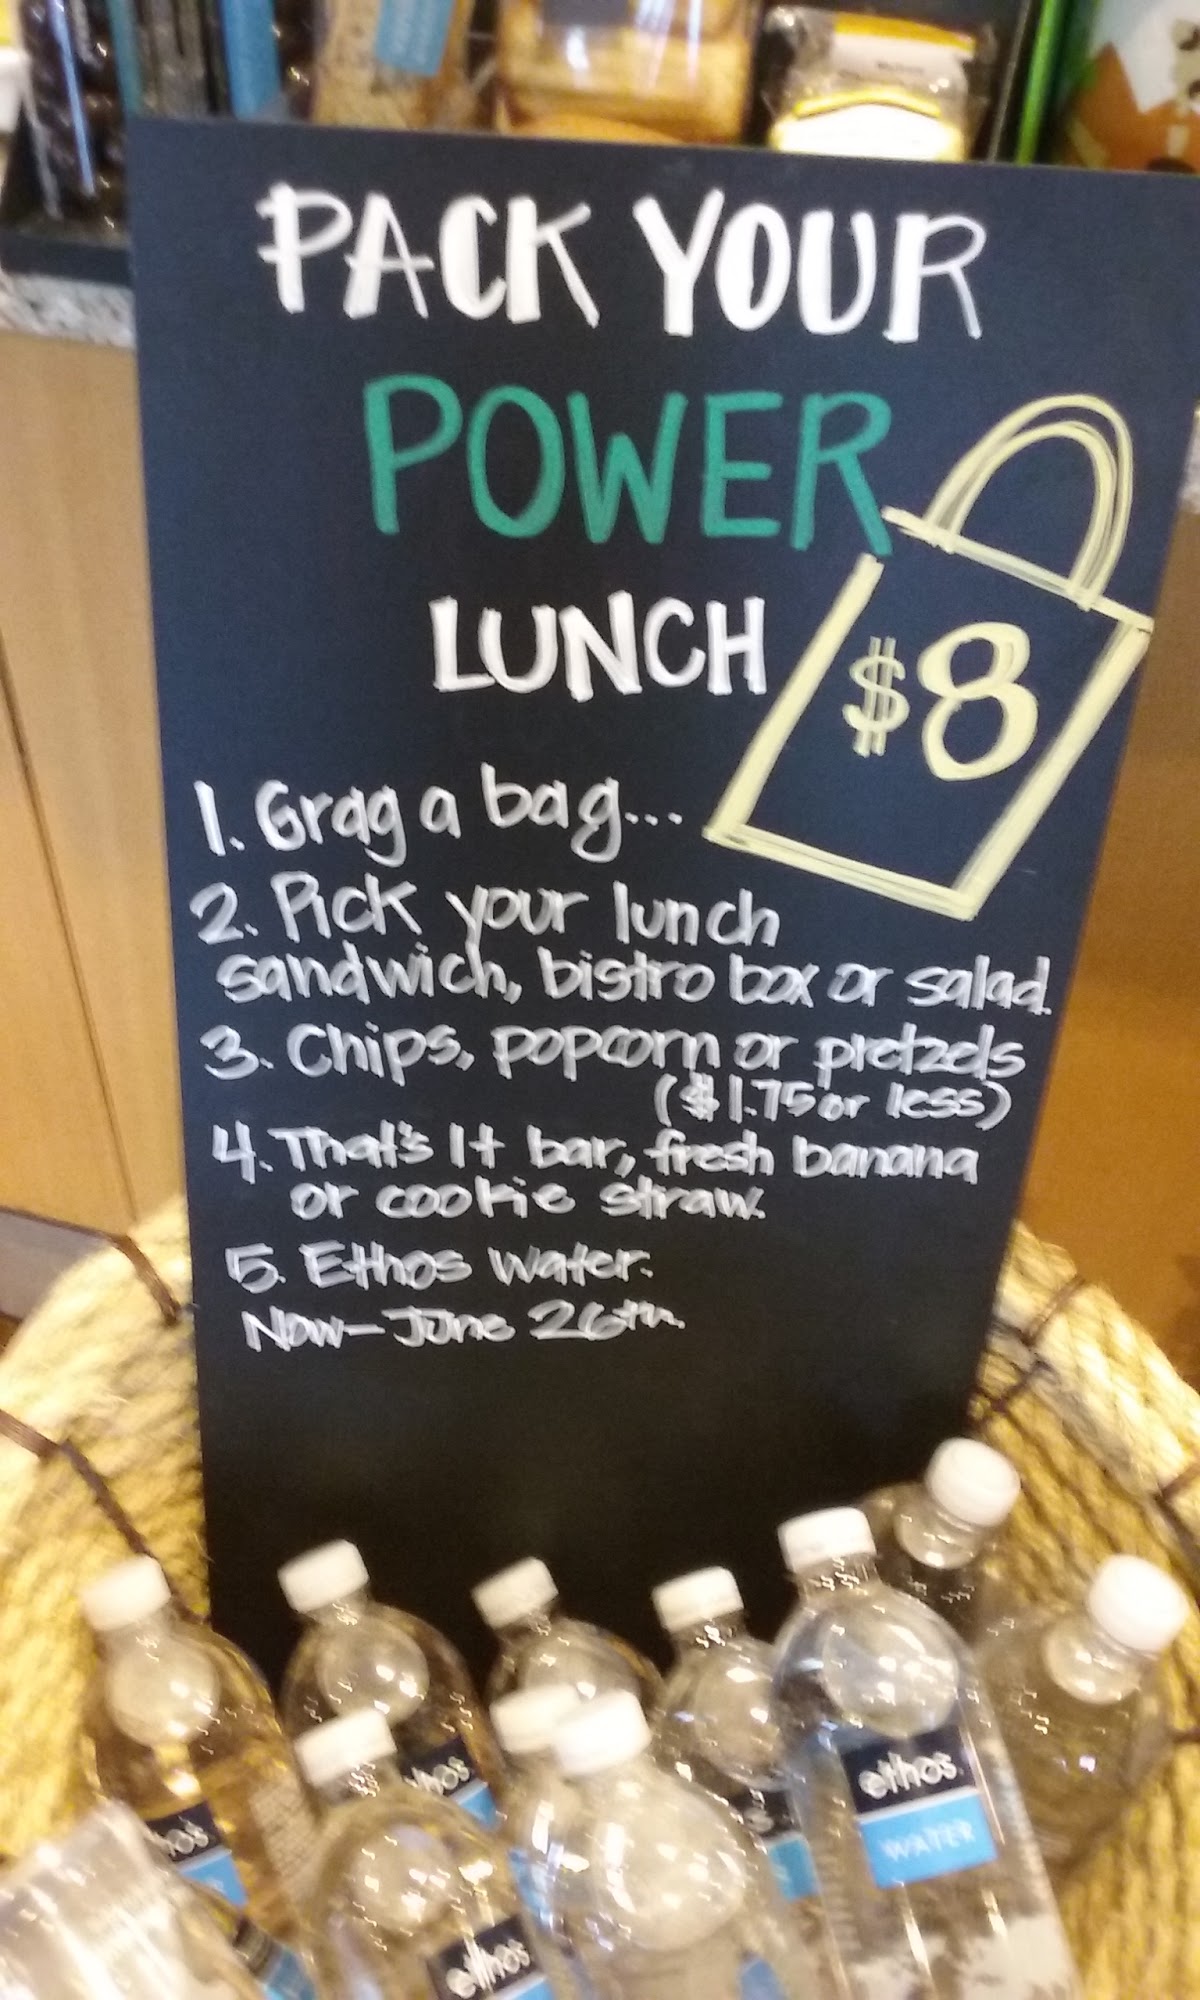 PACK YOUR
POWER
LUNCH
$8
1. Grag a bag...
2. Pick your lunch
sandwich, bistro box or salad.
3. Chips, popcorn or pretzels
($1.75 or less)
4. That's It bar, fresh banana
or cookie straw.
5. Ethos water.
Now-June 26th.
ethos
WATER
ethos